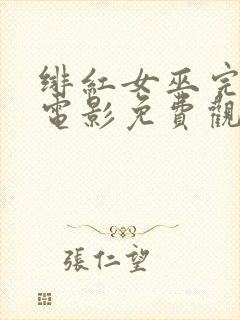 绯红女巫完
電影免費觀
張仁望